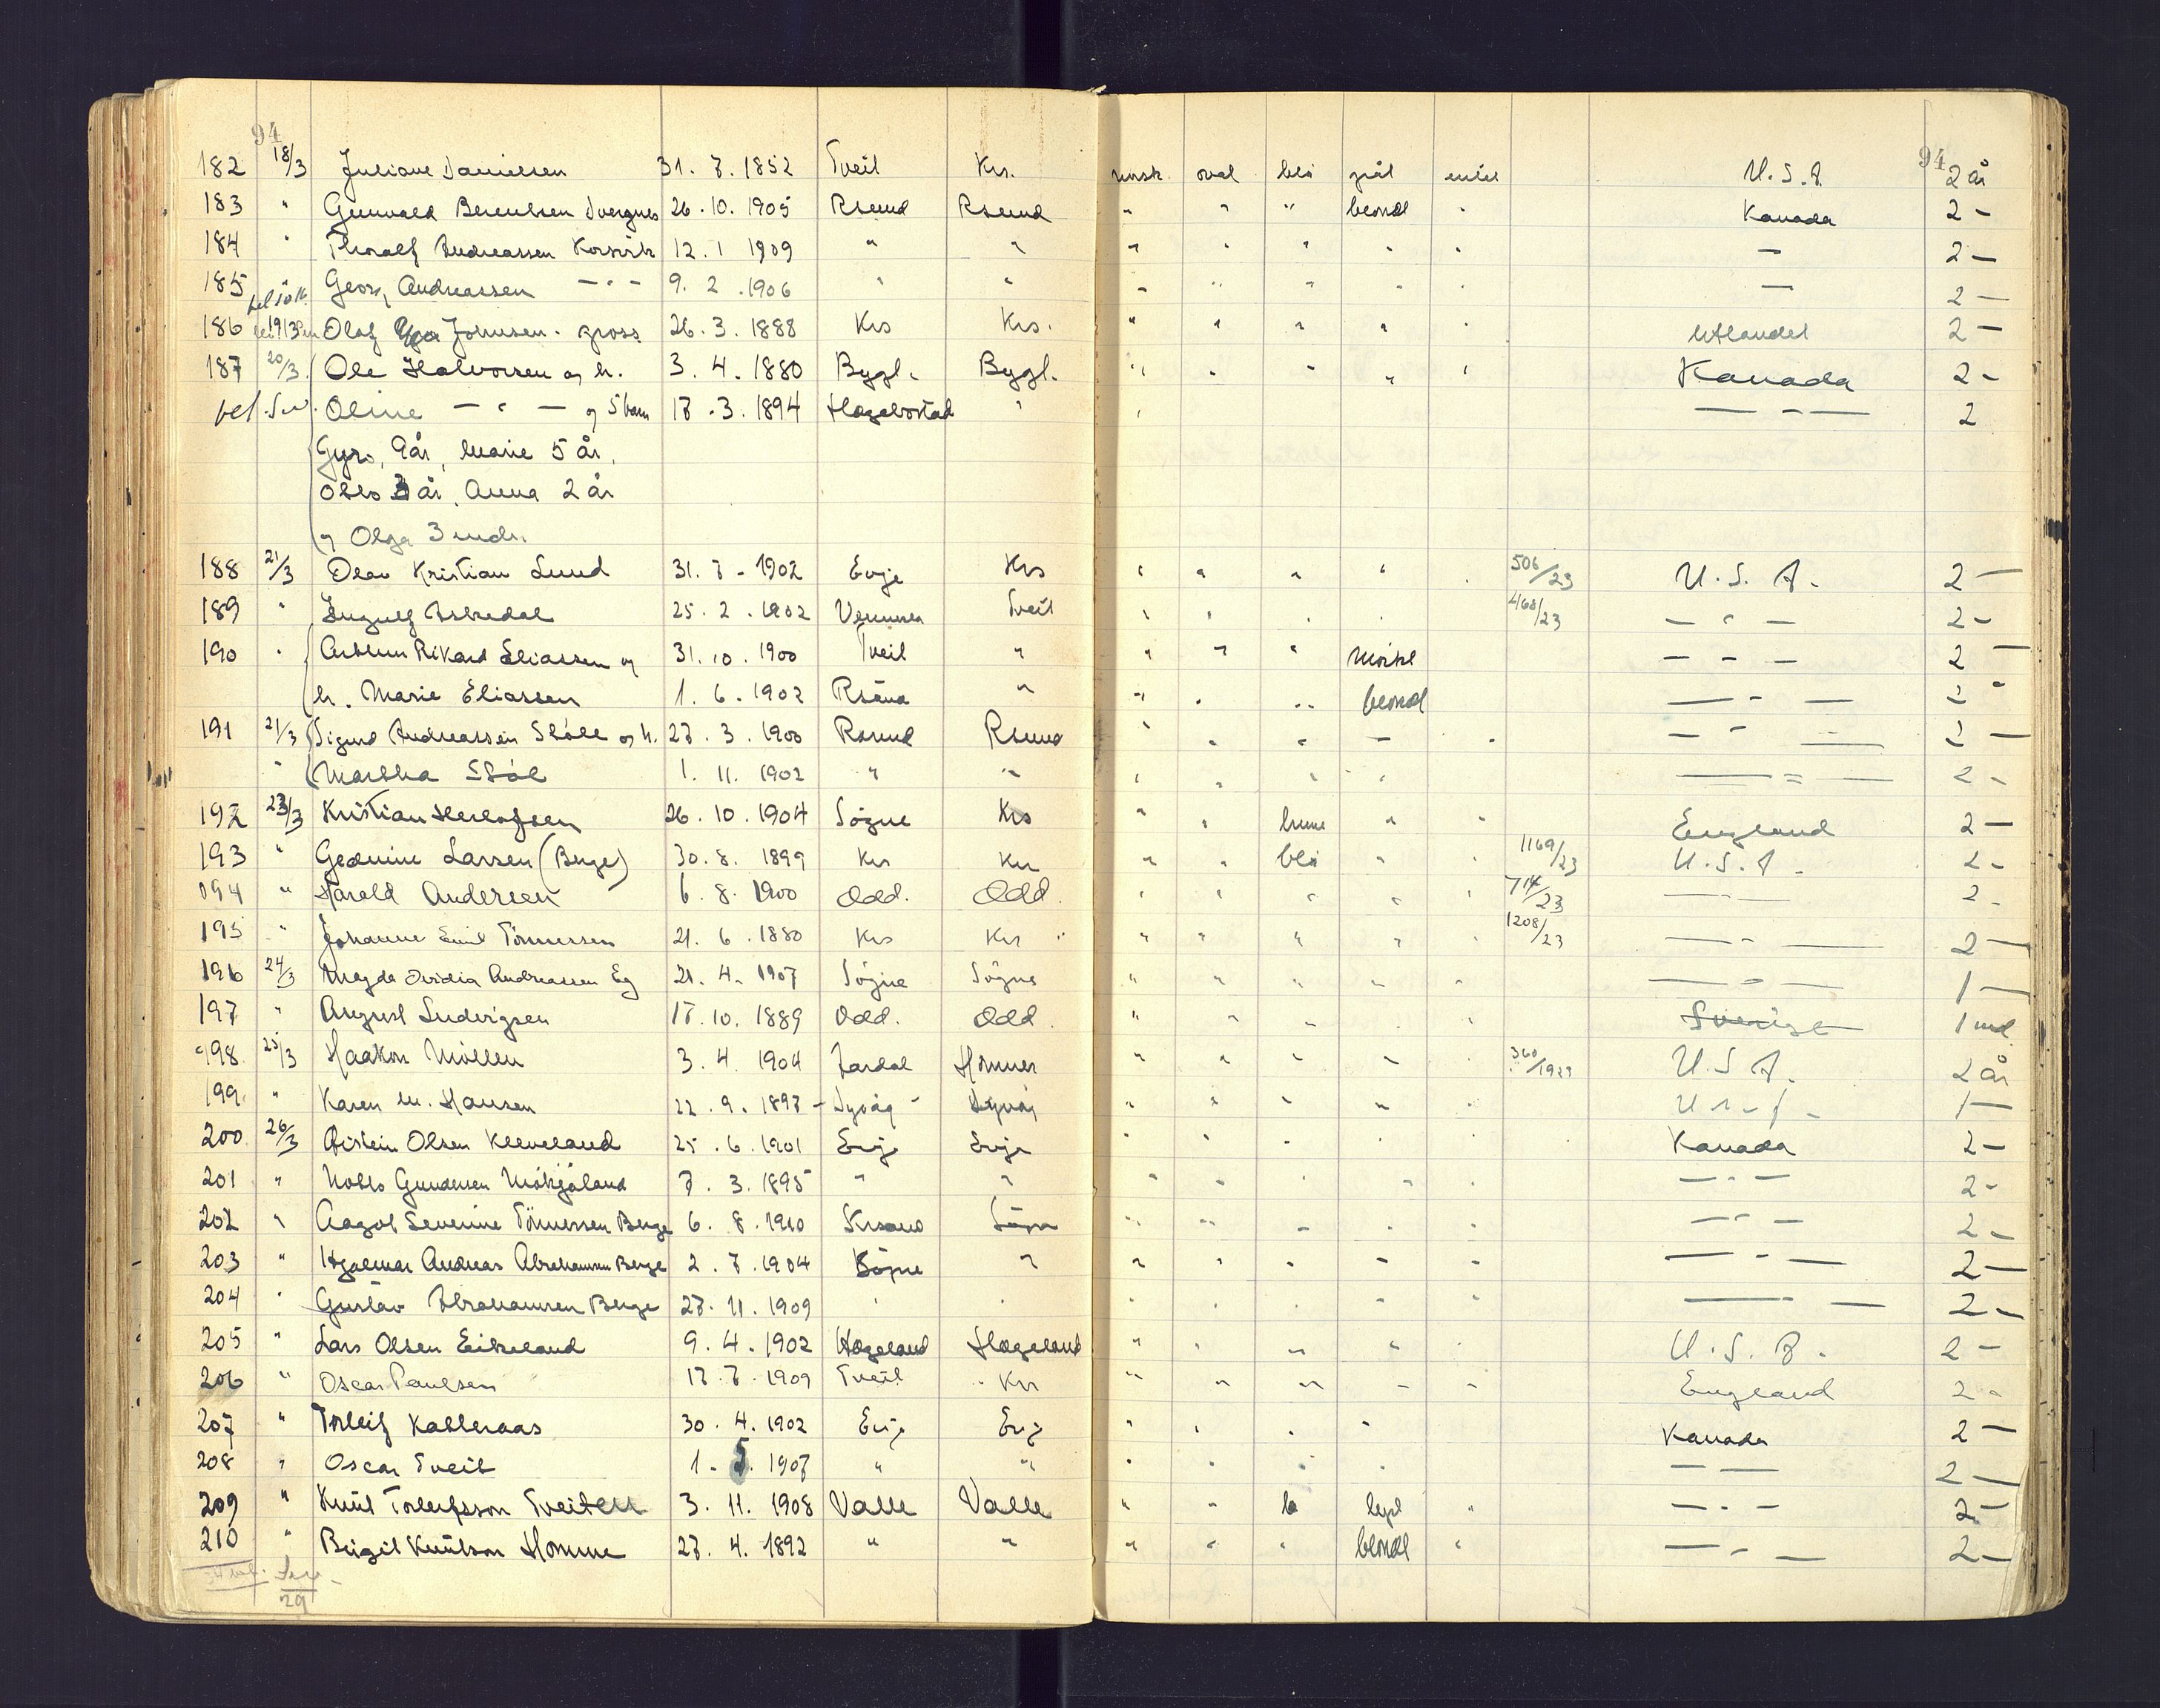 94 94
182 18/3 Juliane Danielsen 31. 7. 1852 Tveit Krs. norsk oval blå grått U.S.A. 2 år
183 " Gunvald Berentsen 26. 10. 1905 Rsund Rsund " " " blond " Kanada 2 -
184 " Thoralf Andreassen Korsvik 12. 1 1909 " " " " " " " — 2 —
185 " Georg Andreassen — " — 9. 2. 1906 " " " " " " " — 2 —
186 Olaf Johnsen. gross. 26. 3. 1888 Krs Krs. " " " " " Utlandet 2 —
187 20/3 Ole Halvorsen og h. 3. 4. 1880 Bygl. Bygl. " " " " " Kanada 2 -
Oline — " — og 5 barn 17. 3. 1894 Hægebostad " " — " — 2
Gyro, 9 år, Marie 5 år,
Otto 3 år, Anna 2 år
og Olga 3 mdr.
188 21/3 Olav Kristian Lund 31. 7 - 1902 Evje Krs " " " " " 506/23 U.S.A. 2 —
189 " Ingulf 25. 2. 1902 Vennesla Tveit " " " " 468/23 — " — 2 -
190 " Rikard Eliassen og 31. 10. 1900 Tveit " " " " mørkt — " — 2 —
h. Marie Eliassen 1. 6. 1902 " " " " blond — " — 2 -
191 21/3 Sigurd Andreassen Støle og h. 27. 3. 1900 Rsund Rsund " " " — " — " — 2 —
" Martha Støl 1. 11. 1902 " " " " " " — " — 2 -
192 23/3 Kristian Herlofsen 26. 10. 1904 Søgne Krs " " brune " " England 2 —
193 " Gedmine Larsen (Berge) 30. 8. 1899 Krs Krs " " blå " " 1169/23 U.S.A. 2 -
194 " Harald Andersen 6. 8. 1900 Odd. Odd. " " " " " 714/23 — 2 -
195 " Johanne Emil Tønnessen 21. 6. 1880 Krs Krs " " " " " 1208/23 — " — 2 —
196 24/3 Magda Ovidia Andreassen Eg 21. 4. 1907 Søgne Søgne " " " " " — " — 1 —
197 " August Ludvigsen 17. 10. 1889 Odd. Odd. " " " " " Sverige 1 md
198 25/3 Haakon Møllen 3. 4. 1904 Homme " " " " " 360/1923 U.S.A. 2 år
199 " Karen M. Hansen 22. 9. 1897 " " " " " 1 —
200 26/3 Øistein Olsen Kleveland 25. 6. 1901 Evje Evje " " " " " Kanada 2 —
201 " Gundersen 7. 3. 1895 " " " " " " " — " — 2 -
202 " Aagot Severine Tønnessen Berge 6. 8. 1910 Krsand Søgne " " " " " — " — 2 -
203 " Hjalmar Andreas Abrahamsen Berge 2. 7. 1904 Søgne " " " " " " — " — 2 —
204 " Gustav Abrahamsen Berge 27. 11. 1909 " " " " " " " — " — 2 -
205 " Lars Olsen Eikeland 9. 4. 1902 Hægeland Hægeland " " " " " U.S.A. 2 -
206 " Oscar Paulsen 17. 7. 1909 Tveit Krs " " " " " England 2 -
207 " Torleif Katteraas 30. 4. 1902 Evje Evje " " " " Kanada 2 —
208 " Oscar Tveit 1. 5. 1907 " " " " " " — — 2 —
209 " Knut Torleifsson Tveiten 3. 11. 1908 Valle Valle " " " lyst " — " — 2 -
210 " Birgit Knutson Homme 27. 4. 1892 " " " " " blond " — " — 2 -
29